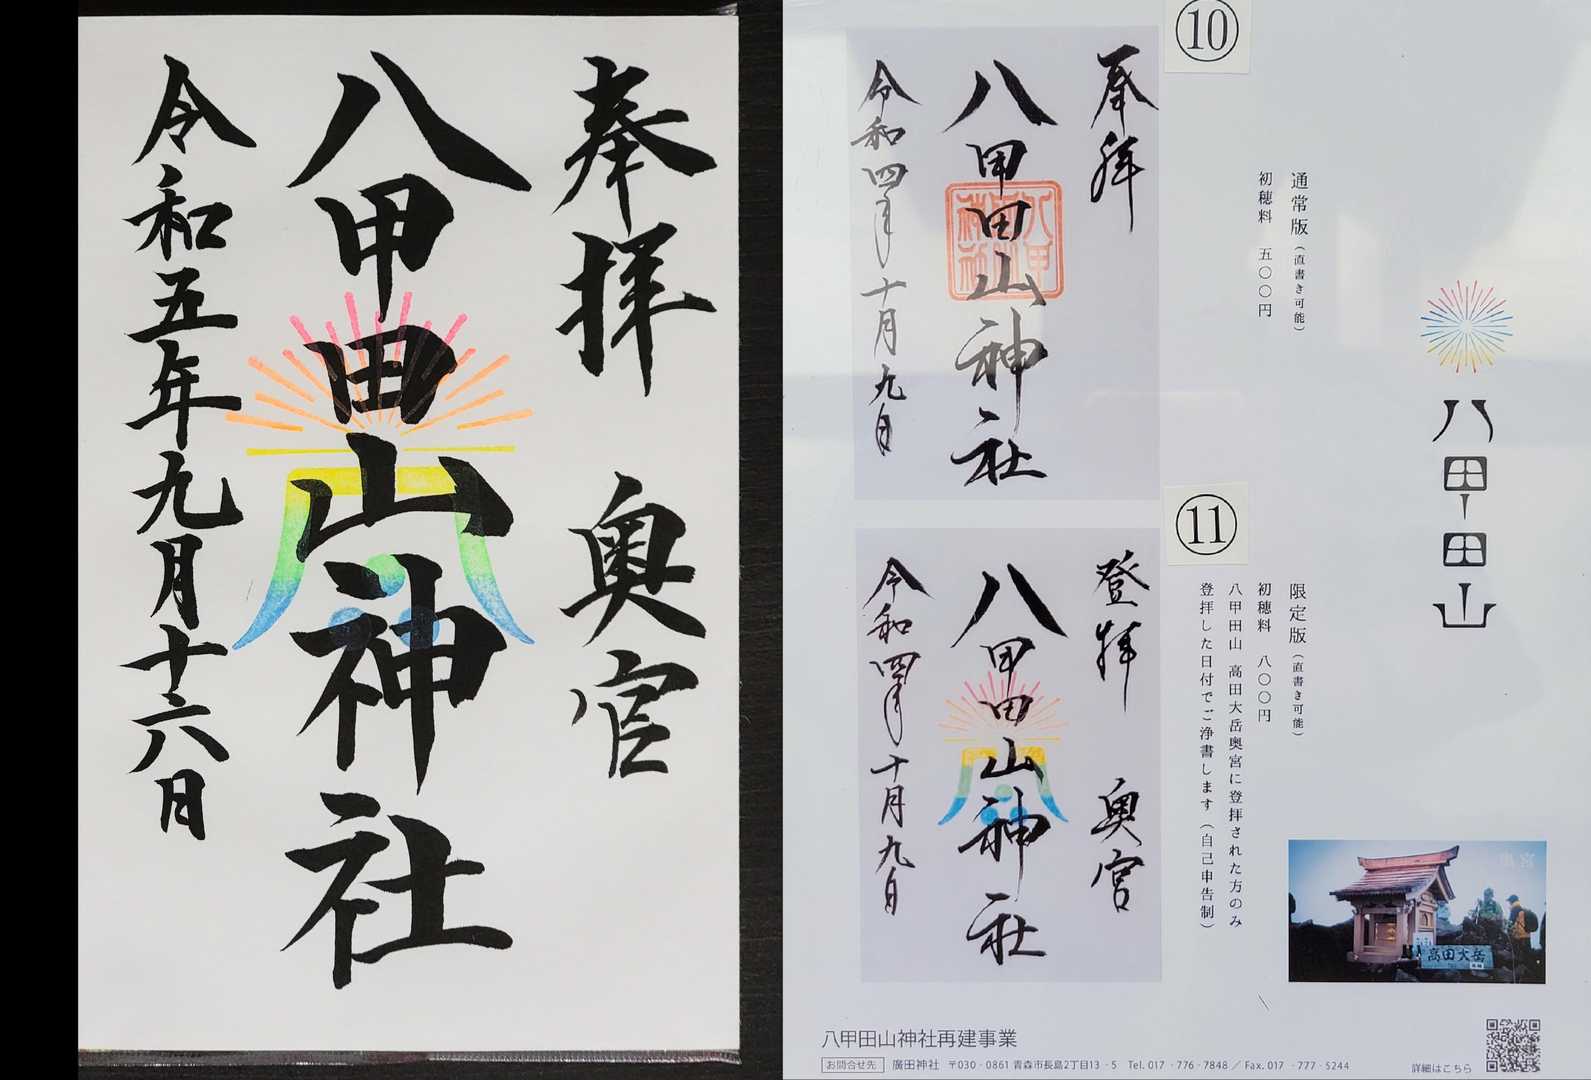 奉拝　奥宮
八甲田山神社
令和五年九月十六日
⑩
奉拝
八甲田山神社
令和四年十月九日
通常版（直書き可能）
初穂料　五〇〇円
⑪
登拝　奥宮
八甲田山神社
令和四年十月九日
限定版（直書き可能）
初穂料　八〇〇円
八甲田山　高田大岳奥宮に登拝された方のみ
登拝した日付でご浄書します（自己申告制）
八甲田山
高田大岳
八甲田山神社再建事業
お問合せ先　廣田神社　〒030‐0861 青森市長島2丁目13‐5　Tel. 017‐776‐7848／Fax. 017‐777‐5244
詳細はこちら